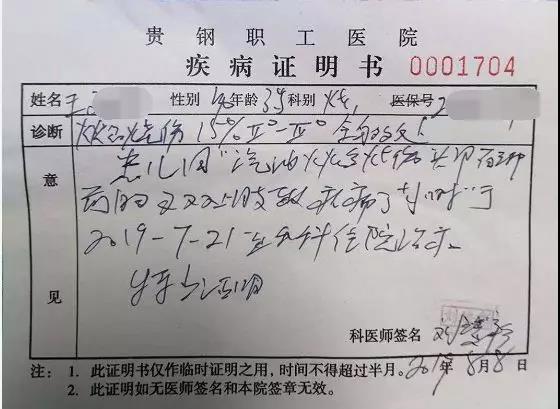 贵钢职工医院
疾病证明书 0001704
姓名 王 性别 年龄 3岁 科别 烧 医保号 2
诊断 火焰烧伤 15% Ⅱ°-Ⅲ° 全身多处
意见
患儿因"汽油火焰烧伤头面颈
双上肢
2019-7-21在我科住院治疗.
特此证明
科医师签名
2019年8月8日
注：1. 此证明书仅作临时证明之用，时间不得超过半月。
2. 此证明如无医师签名和本院签章无效。